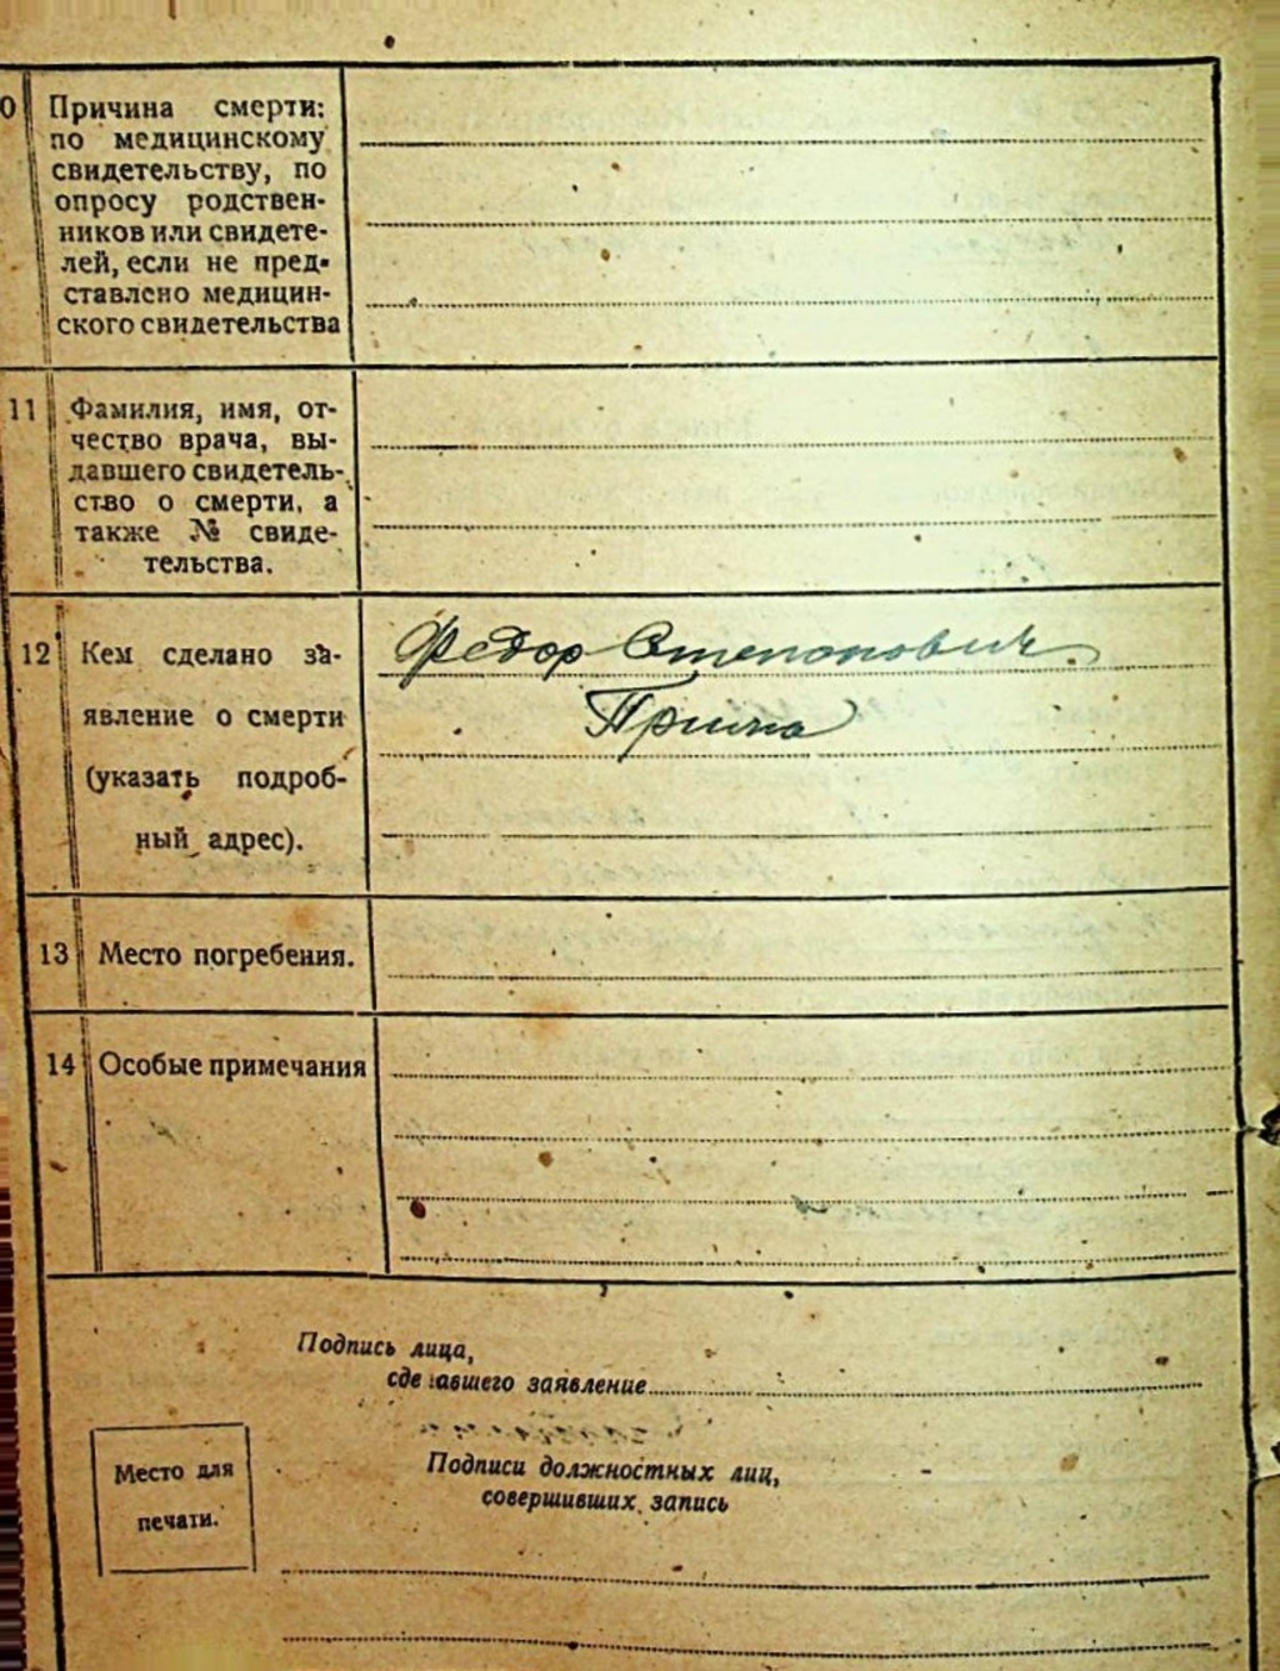 0 Причина смерти:
по медицинскому
свидетельству, по
опросу родствен-
ников или свидете-
лей, если не пред-
ставлено медицин-
ского свидетельства
11 Фамилия, имя, от-
чество врача, вы-
давшего свидетель-
ство о смерти, а
также № свиде-
тельства.
12 Кем сделано за- Федор Степонович
явление о смерти
(указать подроб-
ный адрес).
13 Место погребения.
14 Особые примечания
Подпись лица,
сде авшего заявление
Подписи должностных лиц,
совершивших запись
Место для
печати.